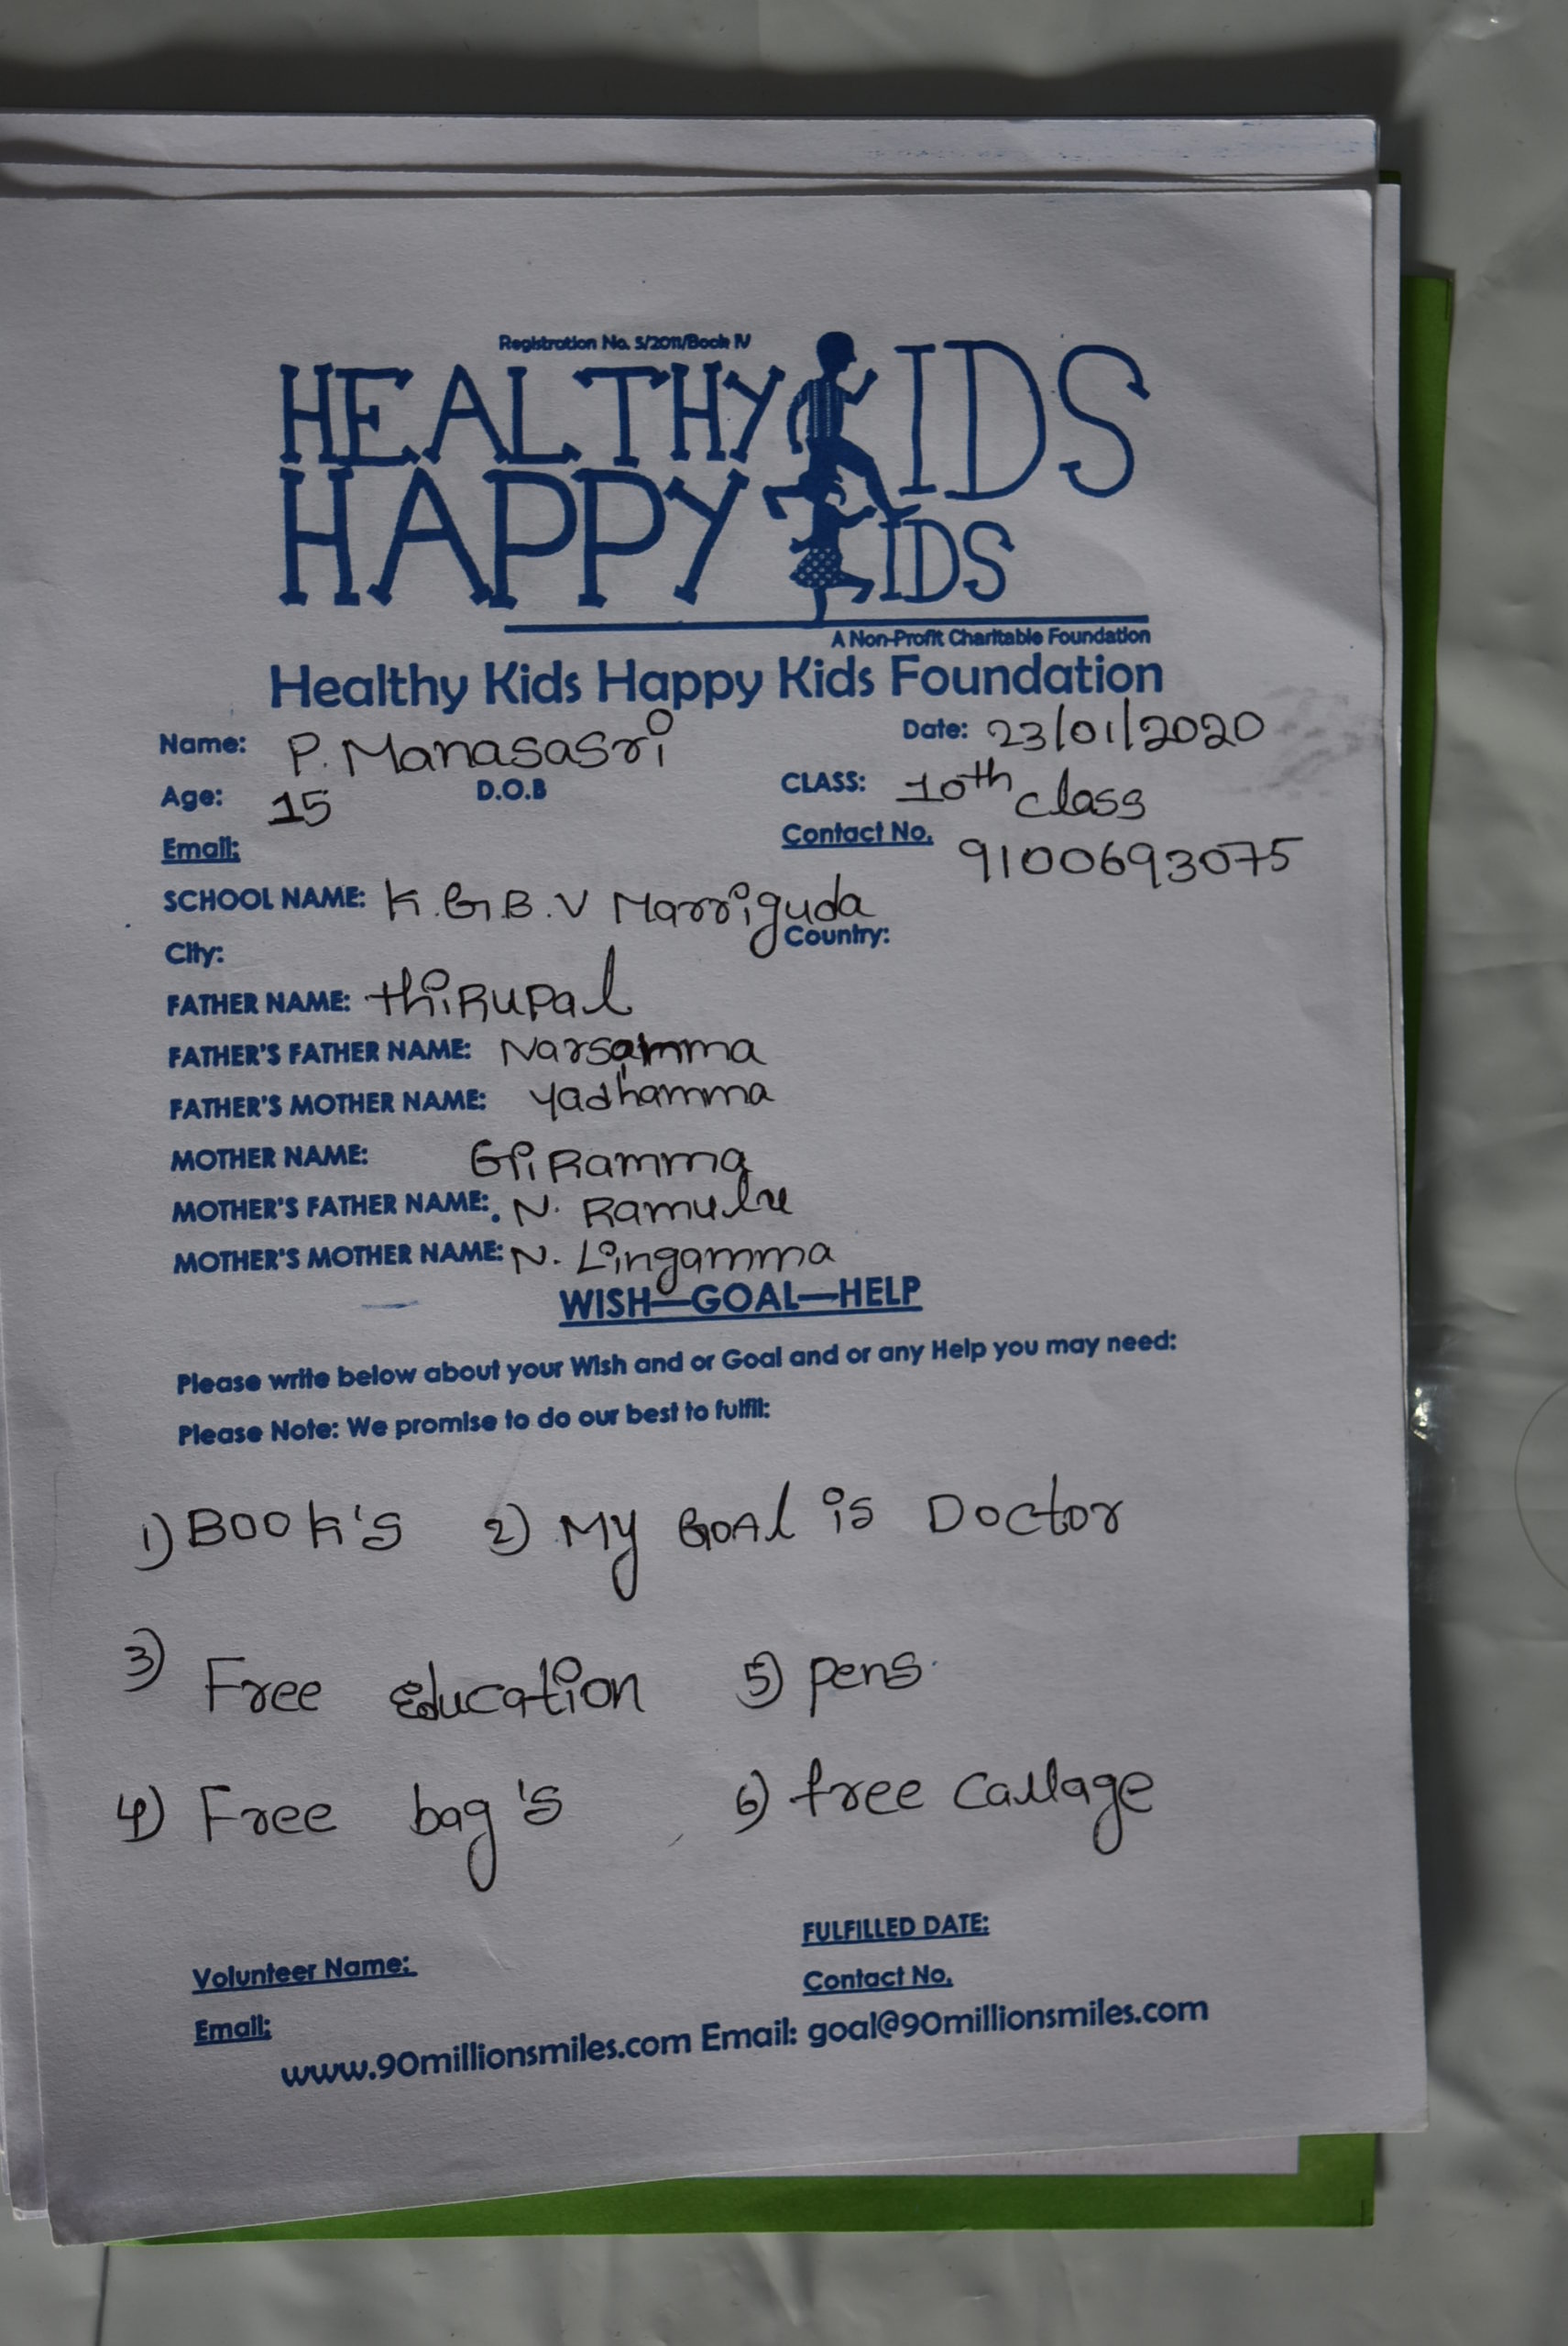 Registration No. 5/2011/Book IV
HEALTHY KIDS
HAPPY KIDS
A Non-Profit Charitable Foundation
Healthy Kids Happy Kids Foundation
Name: P. Manasasri Date: 23/01/2020
Age: 15 D.O.B CLASS: 10th class
Email: Contact No. 9100693075
SCHOOL NAME: K.G.B.V Marriguda
City: Country:
FATHER NAME: thiRupal
FATHER'S FATHER NAME: Narsamma
FATHER'S MOTHER NAME: Yadhamma
MOTHER NAME: GiRamma
MOTHER'S FATHER NAME: N. Ramulu
MOTHER'S MOTHER NAME: N. Lingamma
WISH—GOAL—HELP
Please write below about your Wish and or Goal and or any Help you may need:
Please Note: We promise to do our best to fulfil:
1) Book's 2) My GOAl is Doctor
3) Free education 5) pens.
4) Free bag's 6) free callage
FULFILLED DATE:
Volunteer Name: Contact No.
Email:
www.90millionsmiles.com Email: goal@90millionsmiles.com